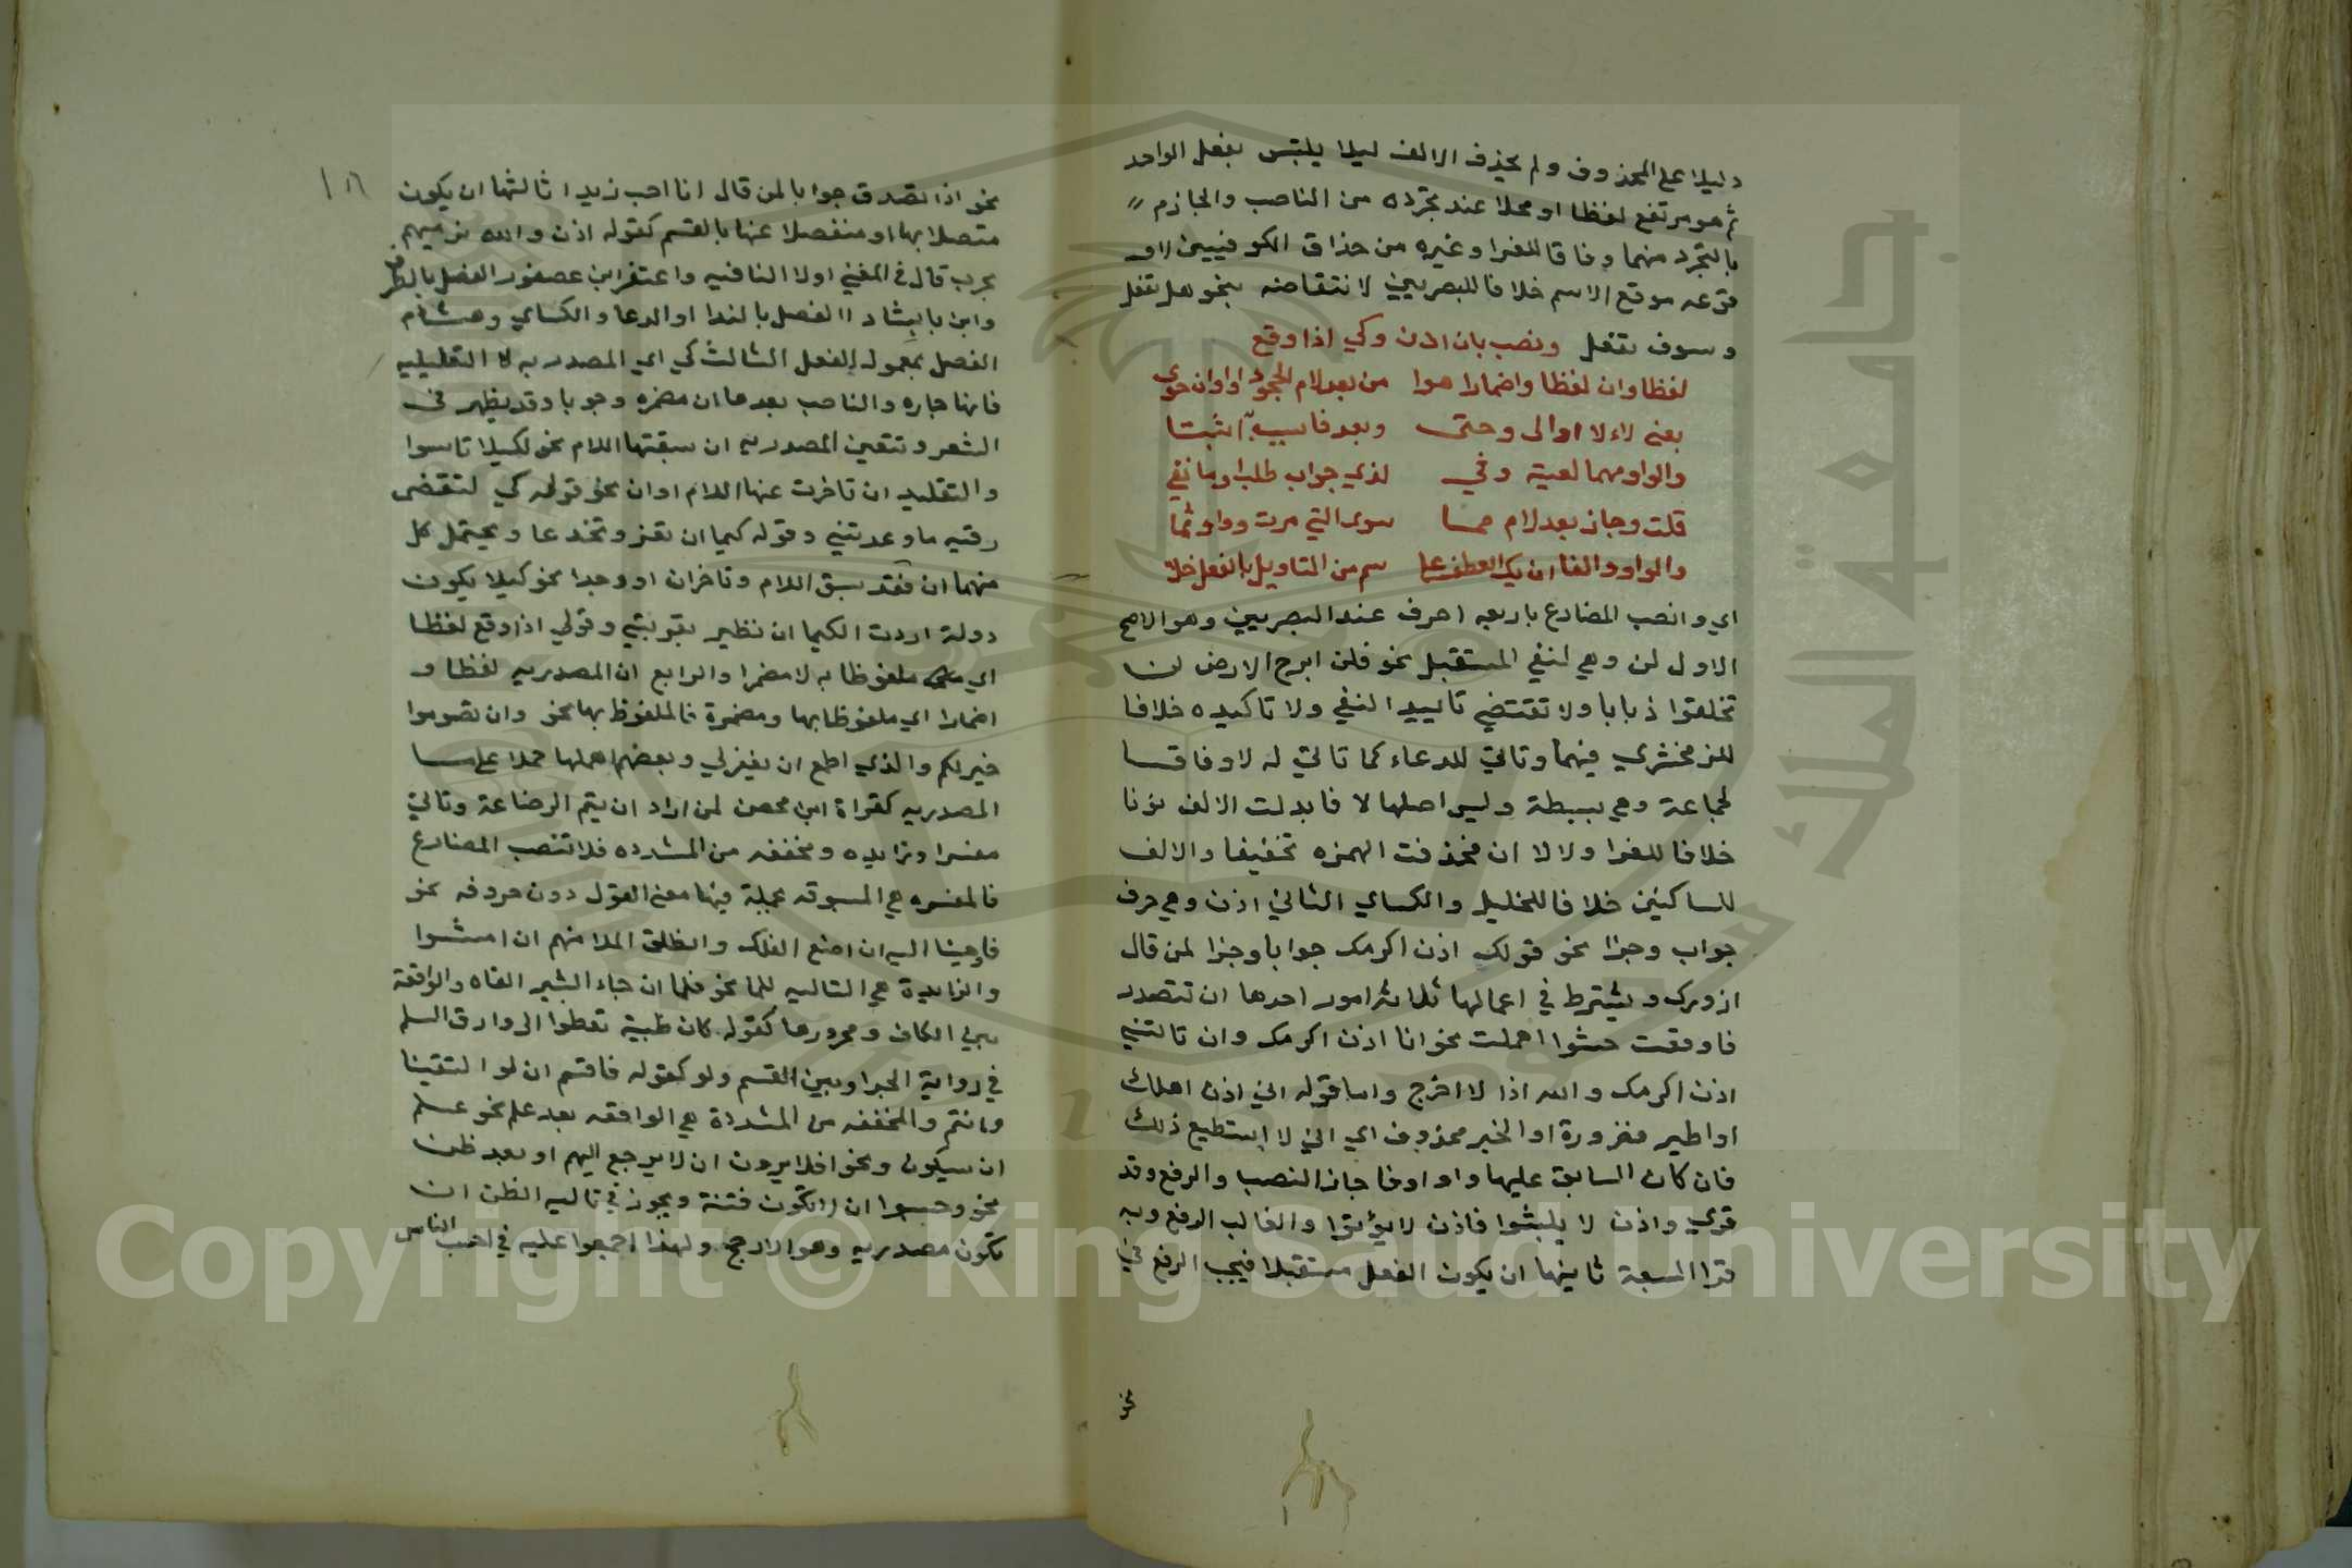 دليلا على المحذوف ولم يحذف الالف ليلا يلتبس بفعل الواحد
ثم هو مرتفع لفظا او محلا عند تجرده من الناصب والجازم
بالتجرد منهما وفاقا للفرا وغيره من حذاق الكوفيين لا و
قوعه موقع الاسم خلافا للبصريين لانتقاضه بنحو هل تفعل
و سوف تفعل ونصب بان اذن وكي اذا وقع
لفظا وان لفظا واضمارا هوا من بعد لام الجحود او اوان حوى
بعنى لاولا اوالى وحتى وبعد فا سببا اثبتا
والواو مهما لعية وفي لذي جواب طلبا وما نفي
قلت وجاز بعد لام مسا سوى التي مرت وواو ثما
والواو والفا ان يك العطف على سم من التاويل بالفعل خلا
اي وانصب المضارع باربعه احرف عند البصريين وهو الاصح
الاول لن وهي لنفي المستقبل نحو فلن ابرح الارض لن
تخلقوا ذبابا ولا تقتضي تابيد النفي ولا تاكيده خلافا
للزمخشري فيهما وتاتي للدعاء كما تاتي له لا وفاقا
لجماعة وهي بسيطة وليس اصلها لا فابدلت الالف نونا
خلافا للفرا ولا لا ان فحذفت الهمزه تخفيفا والالف
للساكنين خلافا للخليل والكساي الثاني اذن وهي حرف
جواب وجزا نحو قولك اذن اكرمك جوابا وجزا لمن قال
ازورك ويشترط في اعمالها ثلاثه امور احدها ان تتصدر
فاو وقعت حشوا اهملت نحو انا اذن اكرمك وان تاتني
اذن اكرمك والله اذا لا اخرج واما قوله اني اذن اهلك
او اطير فضرورة او الخبر محذوف اي اني لا استطيع ذلك
فان كان السابق عليها واو او فا جاز النصب والرفع وقد
قري واذن لا يلبثوا فاذن لا يؤتوا والغالب الرفع وبه
قرا السبعة ثانيها ان يكون الفعل مستقبلا فيجب الرفع في
نحو
نحو اذا تصدق جوابا لمن قال انا احب زيدا ثالثها ان يكون
متصلا بها او منفصلا عنها بالقسم كقوله اذن والله نرميهم
بحرب قال في المغني اولا النافيه واغتفر ابن عصفور الفصل بالظرف
وابن بابشاد االفصل بالندا او الدعا والكساي وهشام
الفصل بمعمول الفعل الثالث كي اي المصدريه لا التعليليه
فانها جاره والناصب بعدها ان مضمره وجوبا وقد يظهر في
الشعر وتتعين المصدريه ان سبقتها اللام نحو لكيلا تاسوا
والتعليل ان تاخرت عنها اللام او ان نحو قوله كي لتقضى
رقيه ما وعدتني وقوله كيما ان تغر وتخدعا ويحتمل كل
منهما ان فقد سبق اللام وتاخران او وجدا نحو كيلا يكون
دولة اردت لكيما ان تطير بقربتي وقولي اذا وقع لفظا
اي ملفوظا به لا مضمرا والرابع ان المصدريه لفظا و
اضمارا اي ملفوظا بها ومضمرة فالملفوظ بها نحو وان تصوموا
خير لكم والذي اطمع ان يغفر لي وبعضهم اهملها حملا على ما
المصدريه كقراة ابن محصن لمن اراد ان يتم الرضاعة وتاتي
مفسرا وزايده ومخففه من المشدده فلا تنصب المضارع
فالمفسره هي المسبوقه بجملة فيها معنى القول دون حروفه نحو
فاوحينا اليه ان اصنع الفلك وانطلق الملا منهم ان امشوا
والزايدة هي التاليه للما نحو فلما ان جاء البشير القاه والواقعة
بين الكاف ومجرورها كقوله كان ظبية تعطوا الى وارق السلم
في رواية الجر او بين القسم ولو كقوله فاقسم ان لو التقينا
وانتم والمخففه من المشددة هي الواقعه بعد علم نحو علم
ان سيكون ونحو افلا يرون ان لا يرجع اليهم او بعد ظن
نحو وحسبوا ان لا تكون فتنة ويجوز في تاليه الظن ان
تكون مصدريه وهو الارجح ولهذا اجمعوا عليه في احسب الناس
جامعة الملك سعود
Copyright © King Saud University